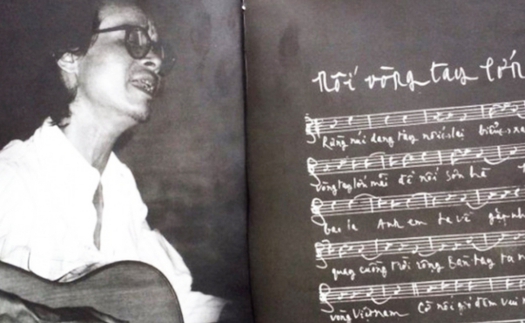 Nối vòng tay lớn
Rừng núi dang tay nối lại biển xa
vòng tay lớn mãi để nối sơn hà
bao la Anh em ta về gặp nhau
quay cuồng trời rộng Bàn tay ta n
vòng Việt nam Cờ nối gió đêm vui